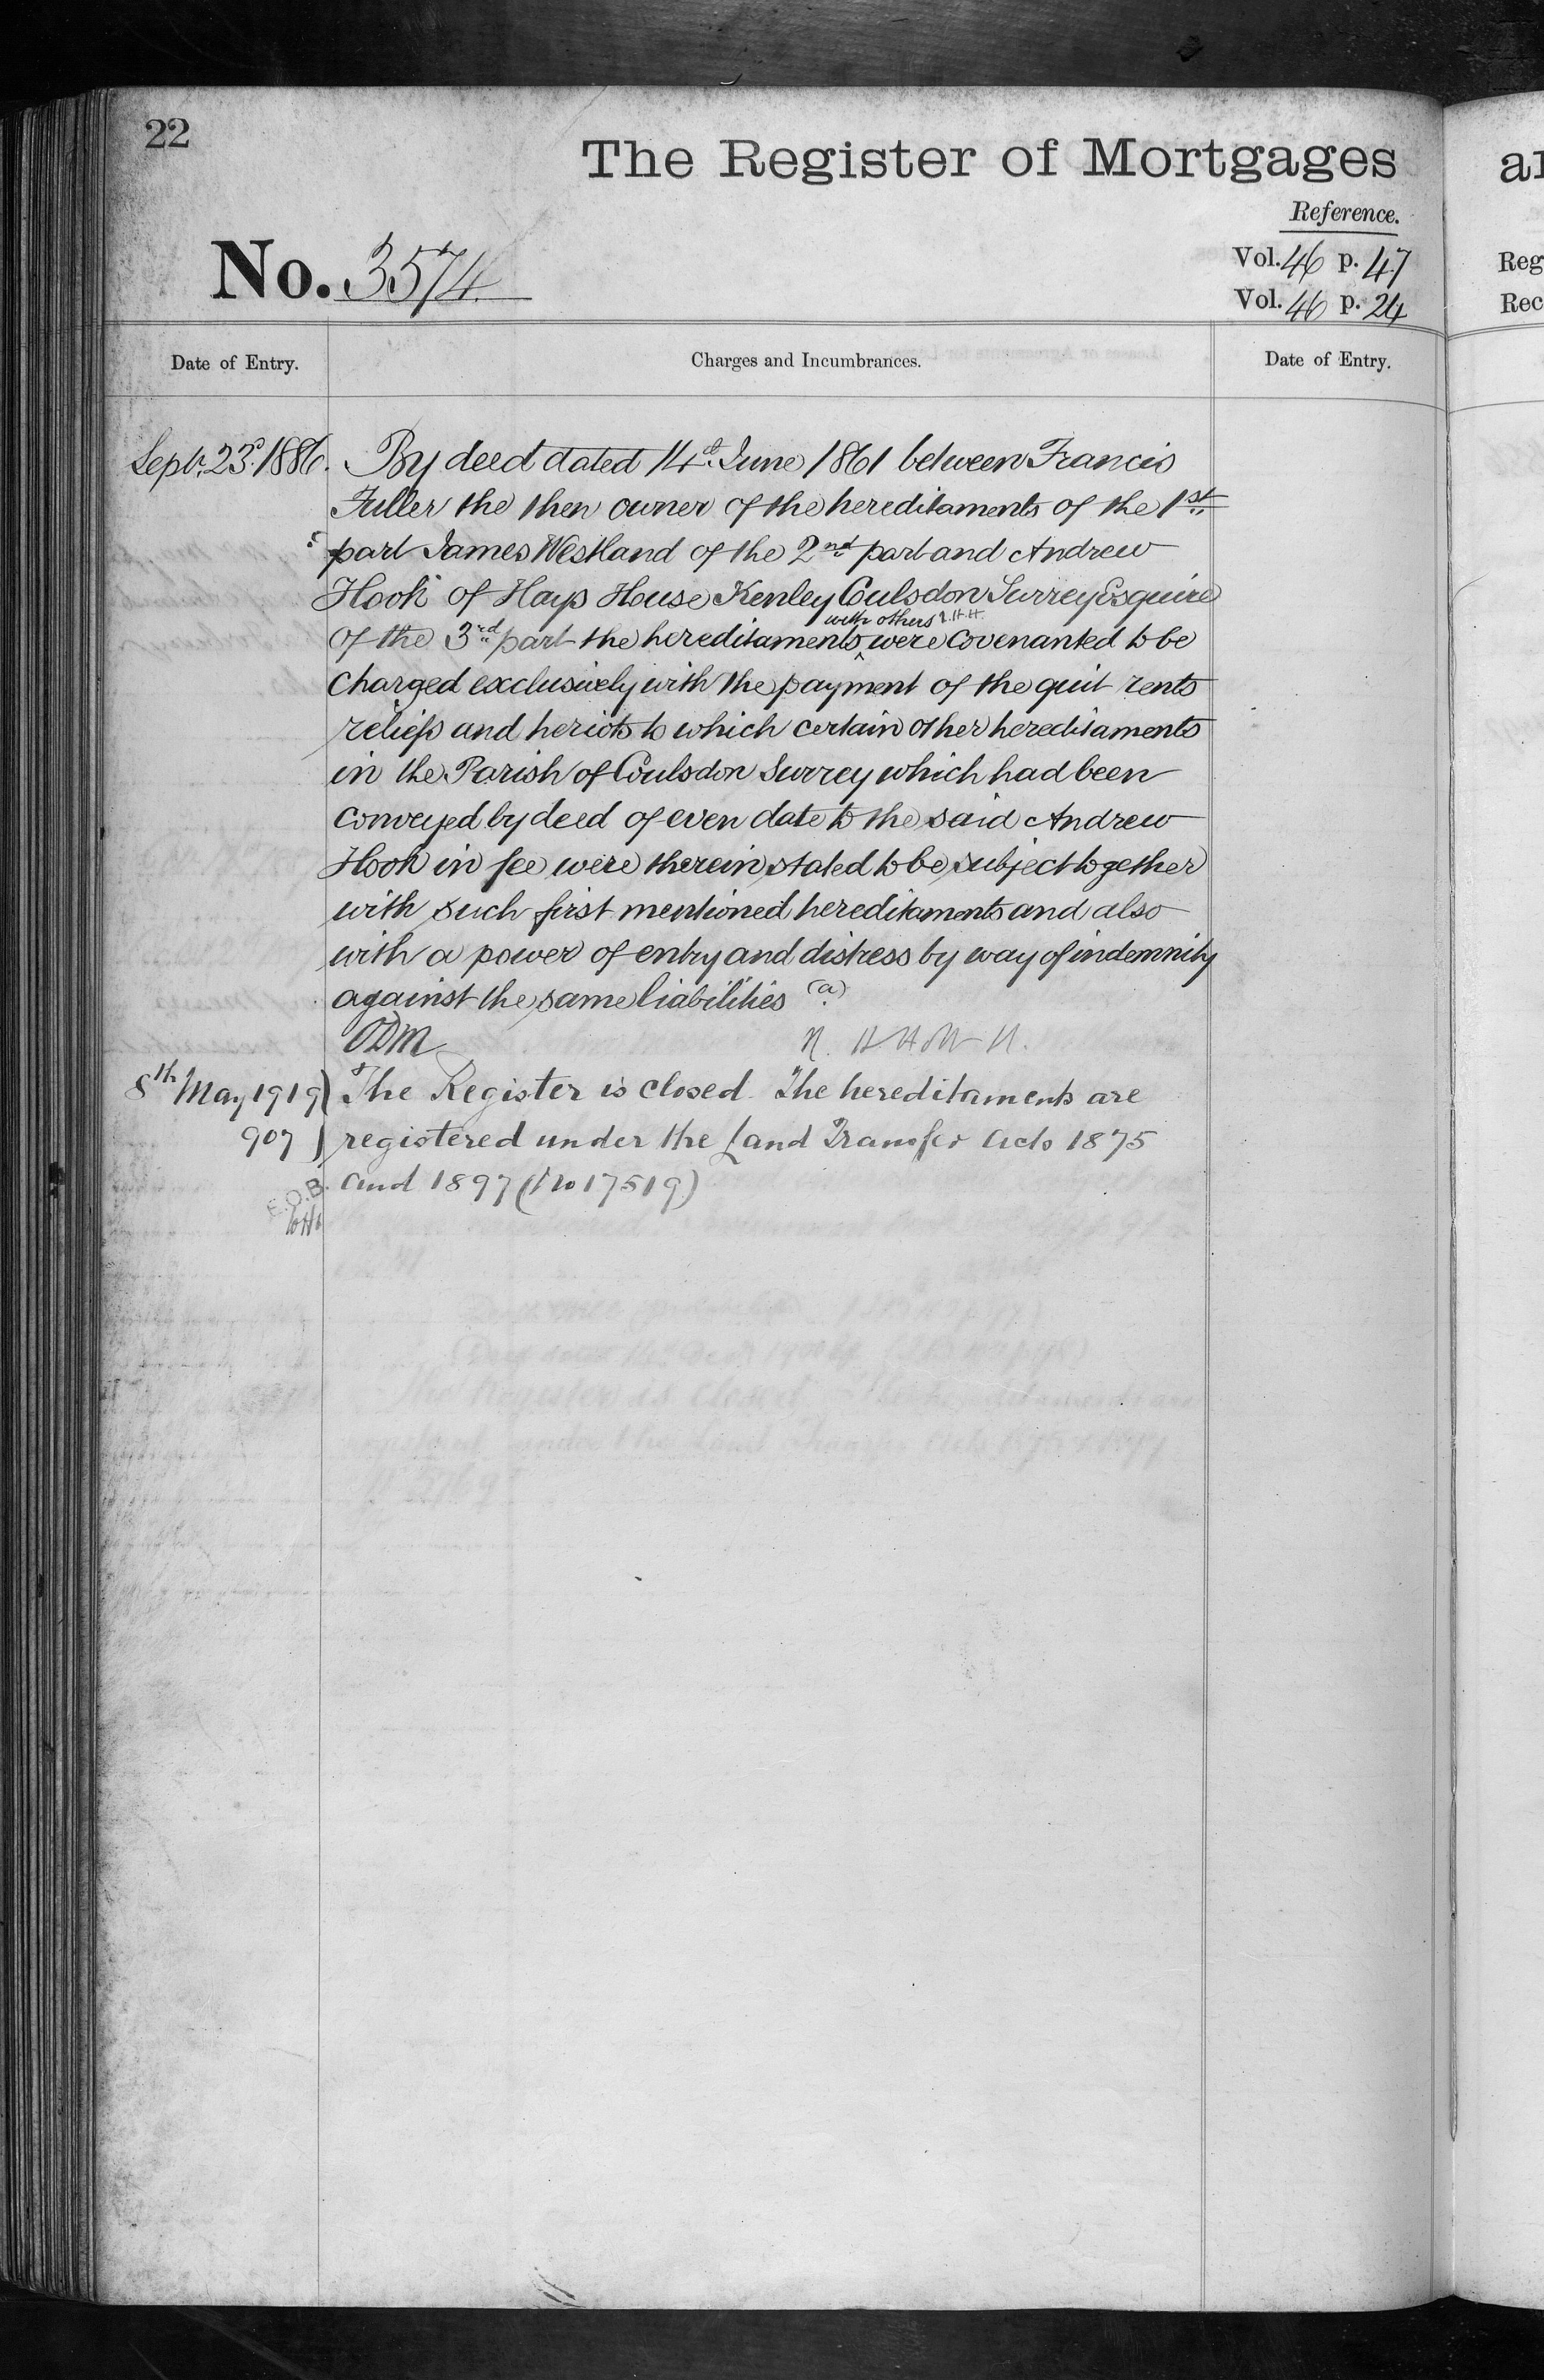 22
The Register of Mortgages
Reference.
No. 3574
Vol. 46 p. 47
Vol. 46 p. 24
Date of Entry.
Charges and Incumbrances.
Date of Entry.
Septr. 23rd. 1886.
By deed dated 14th. June 1861 between Francis
Fuller the then owner of the hereditaments of the 1st
part James Westland of the 2nd part and Andrew
Hook of Hays House Kenley Coulsdon Surrey Esquire
with others
of the 3rd part the hereditaments ‸ were covenanted to be
charged exclusively with the payment of the quit rents
reliefs and heriots to which certain other hereditaments
in the Parish of Coulsdon Surrey which had been
conveyed by deed of even date to the said Andrew
Hook in fee were therein stated to be subject together
with such first mentioned hereditaments and also
with a power of entry and distress by way of indemnity
against the same liabilities (a)
8th May 1919
907
The Register is closed. The hereditaments are
registered under the Land Transfer Acts 1875
and 1897 (No 17519)
E.O.B.
al
Reg
Rec